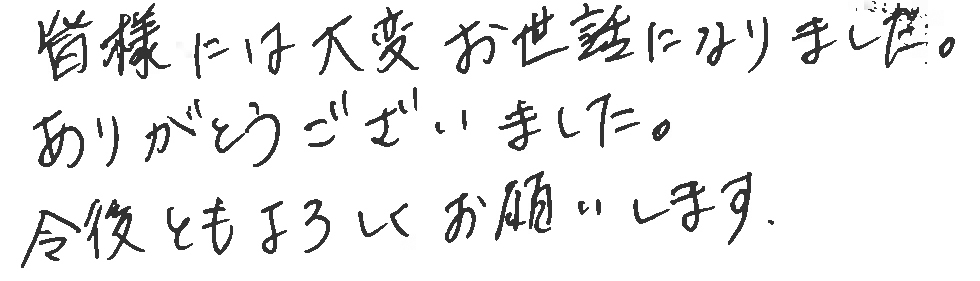 皆様には大変お世話になりました。
ありがとうございました。
今後ともよろしくお願いします.